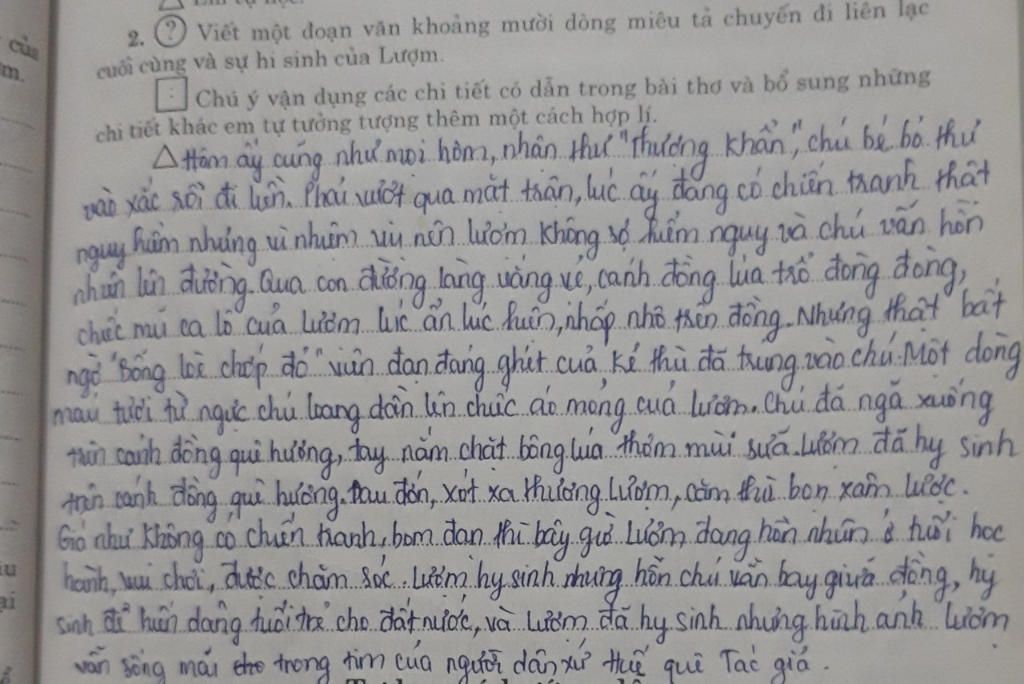 của
m.
2. ? Viết một đoạn văn khoảng mười dòng miêu tả chuyến đi liên lạc
cuối cùng và sự hi sinh của Lượm.
: Chú ý vận dụng các chi tiết có dẫn trong bài thơ và bổ sung những
chi tiết khác em tự tưởng tượng thêm một cách hợp lí.
Hôm ấy cũng như mọi hôm, nhận thư "Thượng khẩn", chú bé bỏ thư
vào xắc rồi đi liền. Phải vượt qua mặt trận, lúc ấy đang có chiến tranh thật
nguy hiểm nhưng vì nhiệm vụ nên lượm không sợ hiểm nguy và chú vẫn hồn
nhiên lên đường. Qua con đường làng vắng vẻ, cánh đồng lúa trổ đòng đòng,
chiếc mũ ca lô của Lượm lúc ẩn lúc hiện, nhấp nhô trên đồng. Nhưng thật bất
ngờ "Bỗng loè chớp đỏ" viên đạn đáng ghét của kẻ thù đã trúng vào chú. Một dòng
máu tươi từ ngực chú loang dần lên chiếc áo mỏng của lượm. Chú đã ngã xuống
trên cánh đồng quê hương, tay nắm chặt bông lúa thơm mùi sữa. Lượm đã hy sinh
trên cánh đồng quê hương. Đau đớn, xót xa thương Lượm, căm thù bọn xâm lược.
Giá như không có chiến tranh, bom đạn thì bây giờ Lượm đang hồn nhiên ở tuổi học
hành, vui chơi, được chăm sóc. Lượm hy sinh nhưng hồn chú vẫn bay giữa đồng, hy
sinh để hiến dâng tuổi trẻ cho đất nước, và Lượm đã hy sinh nhưng hình ảnh Lượm
vẫn sống mãi trong tim của người dân xứ Huế quê Tác giả.